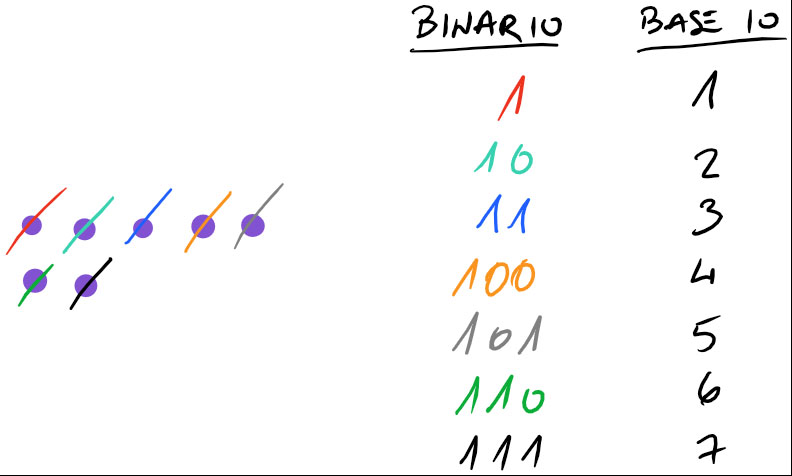 BINARIO BASE 10
1 1
10 2
11 3
100 4
101 5
110 6
111 7